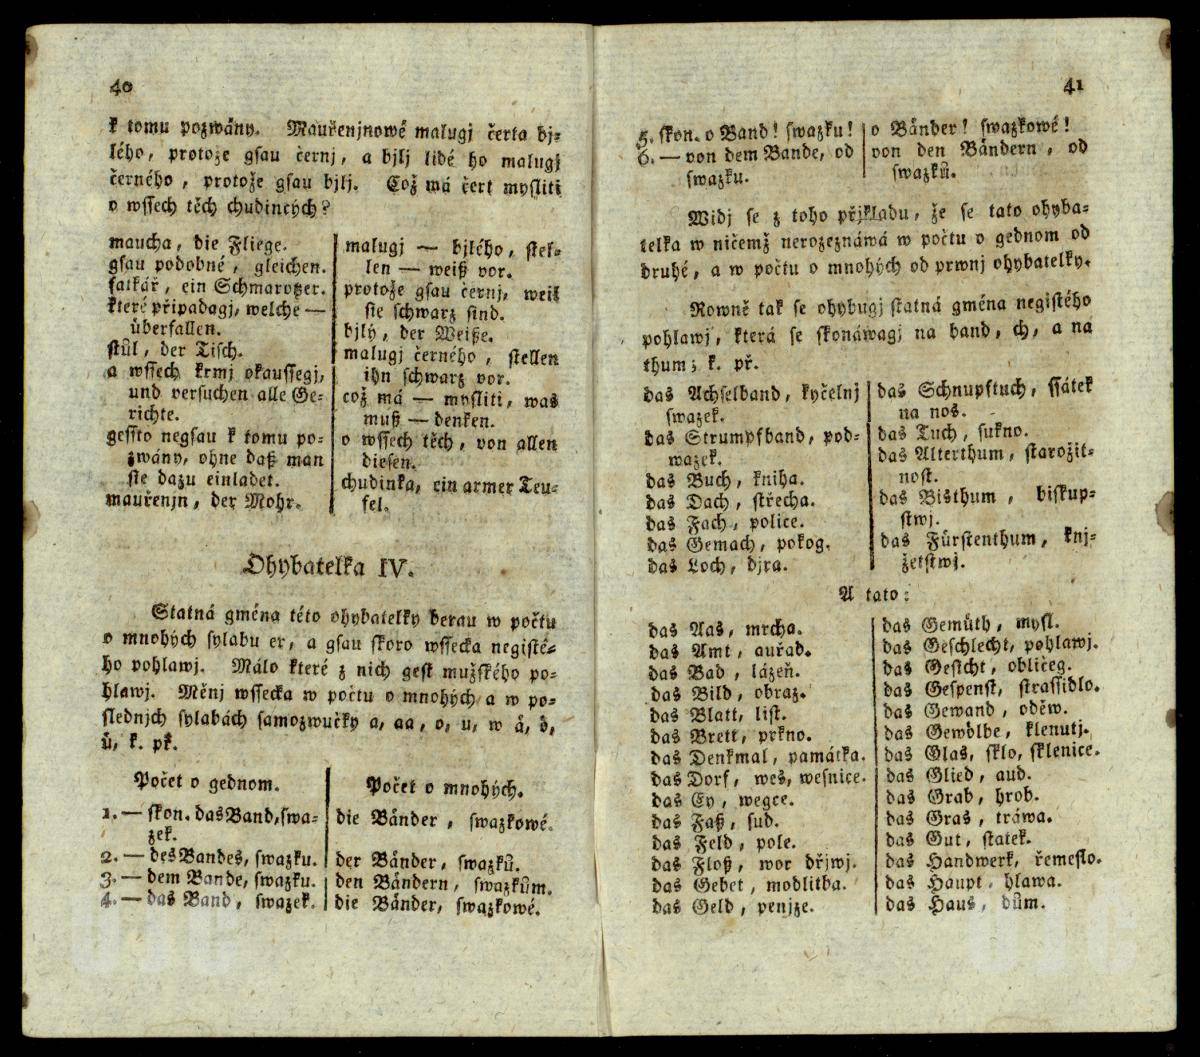 40
k tomu pozwány. Mauřenjnowé malugj čerta bj=
lého, protože gsau černj, a bjlj lidé ho malugj
černého, protože gsau bjlj. Což má čert mysliti
o wssech těch chudincých?
maucha, die Fliege.
gsau podobné, gleichen.
fatkář, ein Schmarotzer.
které připadagj, welche —
überfallen.
stůl, der Tisch.
a wssech krmj okaussegj,
und versuchen alle Ge=
richte.
gessto negsau k tomu po=
zwány, ohne daß man
sie dazu einladet.
mauřenjn, der Mohr.
malugj — bjlého, stel=
len — weiß vor.
protože gsau černj, weil
sie schwarz sind.
bjlý, der Weiße.
malugj černého, stellen
ihn schwarz vor.
což má — mysliti, was
muß — denken.
o wssech těch, von allen
diesen.
chudinka, ein armer Teu=
fel.
Ohybatelka IV.
Statná gména této ohybatelky berau w počtu
o mnohých sylabu er, a gsau skoro wssecka negisté=
ho pohlawj. Málo které z nich gest mužského po=
hlawj. Měnj wssecka w počtu o mnohých a w po=
slednjch sylabách samozwučky a, aa, o, u, w å, ö,
ů, k. př.
Počet o gednom.
1. — skon. das Band, swa=
zek.
2. — des Bandes, swazku.
3. — dem Bande, swazku.
4. — das Band, swazek.
Počet o mnohých.
die Bänder, swazkowé.
der Bänder, swazků.
den Bändern, swazkům.
die Bänder, swazkowé.
41
5. skon. o Band! swazku!
6. — von dem Bande, od
swazku.
o Bänder! swazkowé!
von den Bändern, od
swazků.
Widj se z toho přjkladu, že se tato ohyba=
telka w ničemž nerozeznáwá w počtu o gednom od
druhé, a w počtu o mnohých od prwnj ohybatelky.
Rowně tak se ohybugj statná gména negistého
pohlawj, která se skonáwagj na band, ch, a na
thum; k. př.
das Achselband, kyčelnj
swazek.
das Strumpfband, pod=
wazek.
das Buch, kniha.
das Dach, střecha.
das Fach, police.
das Gemach, pokog.
das Loch, djra.
das Schnupftuch, ssátek
na nos.
das Tuch, sukno.
das Alterthum, starožit=
nost.
das Bisthum, biskup=
stwj.
das Fürstenthum, knj=
žetstwj.
A tato:
das Aas, mrcha.
das Amt, auřad.
das Bad, lázeň.
das Bild, obraz.
das Blatt, list.
das Brett, prkno.
das Denkmal, památka.
das Dorf, wes, wesnice.
das Ey, wegce.
das Faß, sud.
das Feld, pole.
das Floß, wor dřjwj.
das Gebet, modlitba.
das Geld, penjze.
das Gemüth, mysl.
das Geschlecht, pohlawj.
das Gesicht, obličeg.
das Gespenst, strassidlo.
das Gewand, oděw.
das Gewölbe, klenutj.
das Glas, sklo, sklenice.
das Glied, aud.
das Grab, hrob.
das Gras, tráwa.
das Gut, statek.
das Handwerk, řemeslo.
das Haupt, hlawa.
das Haus, dům.